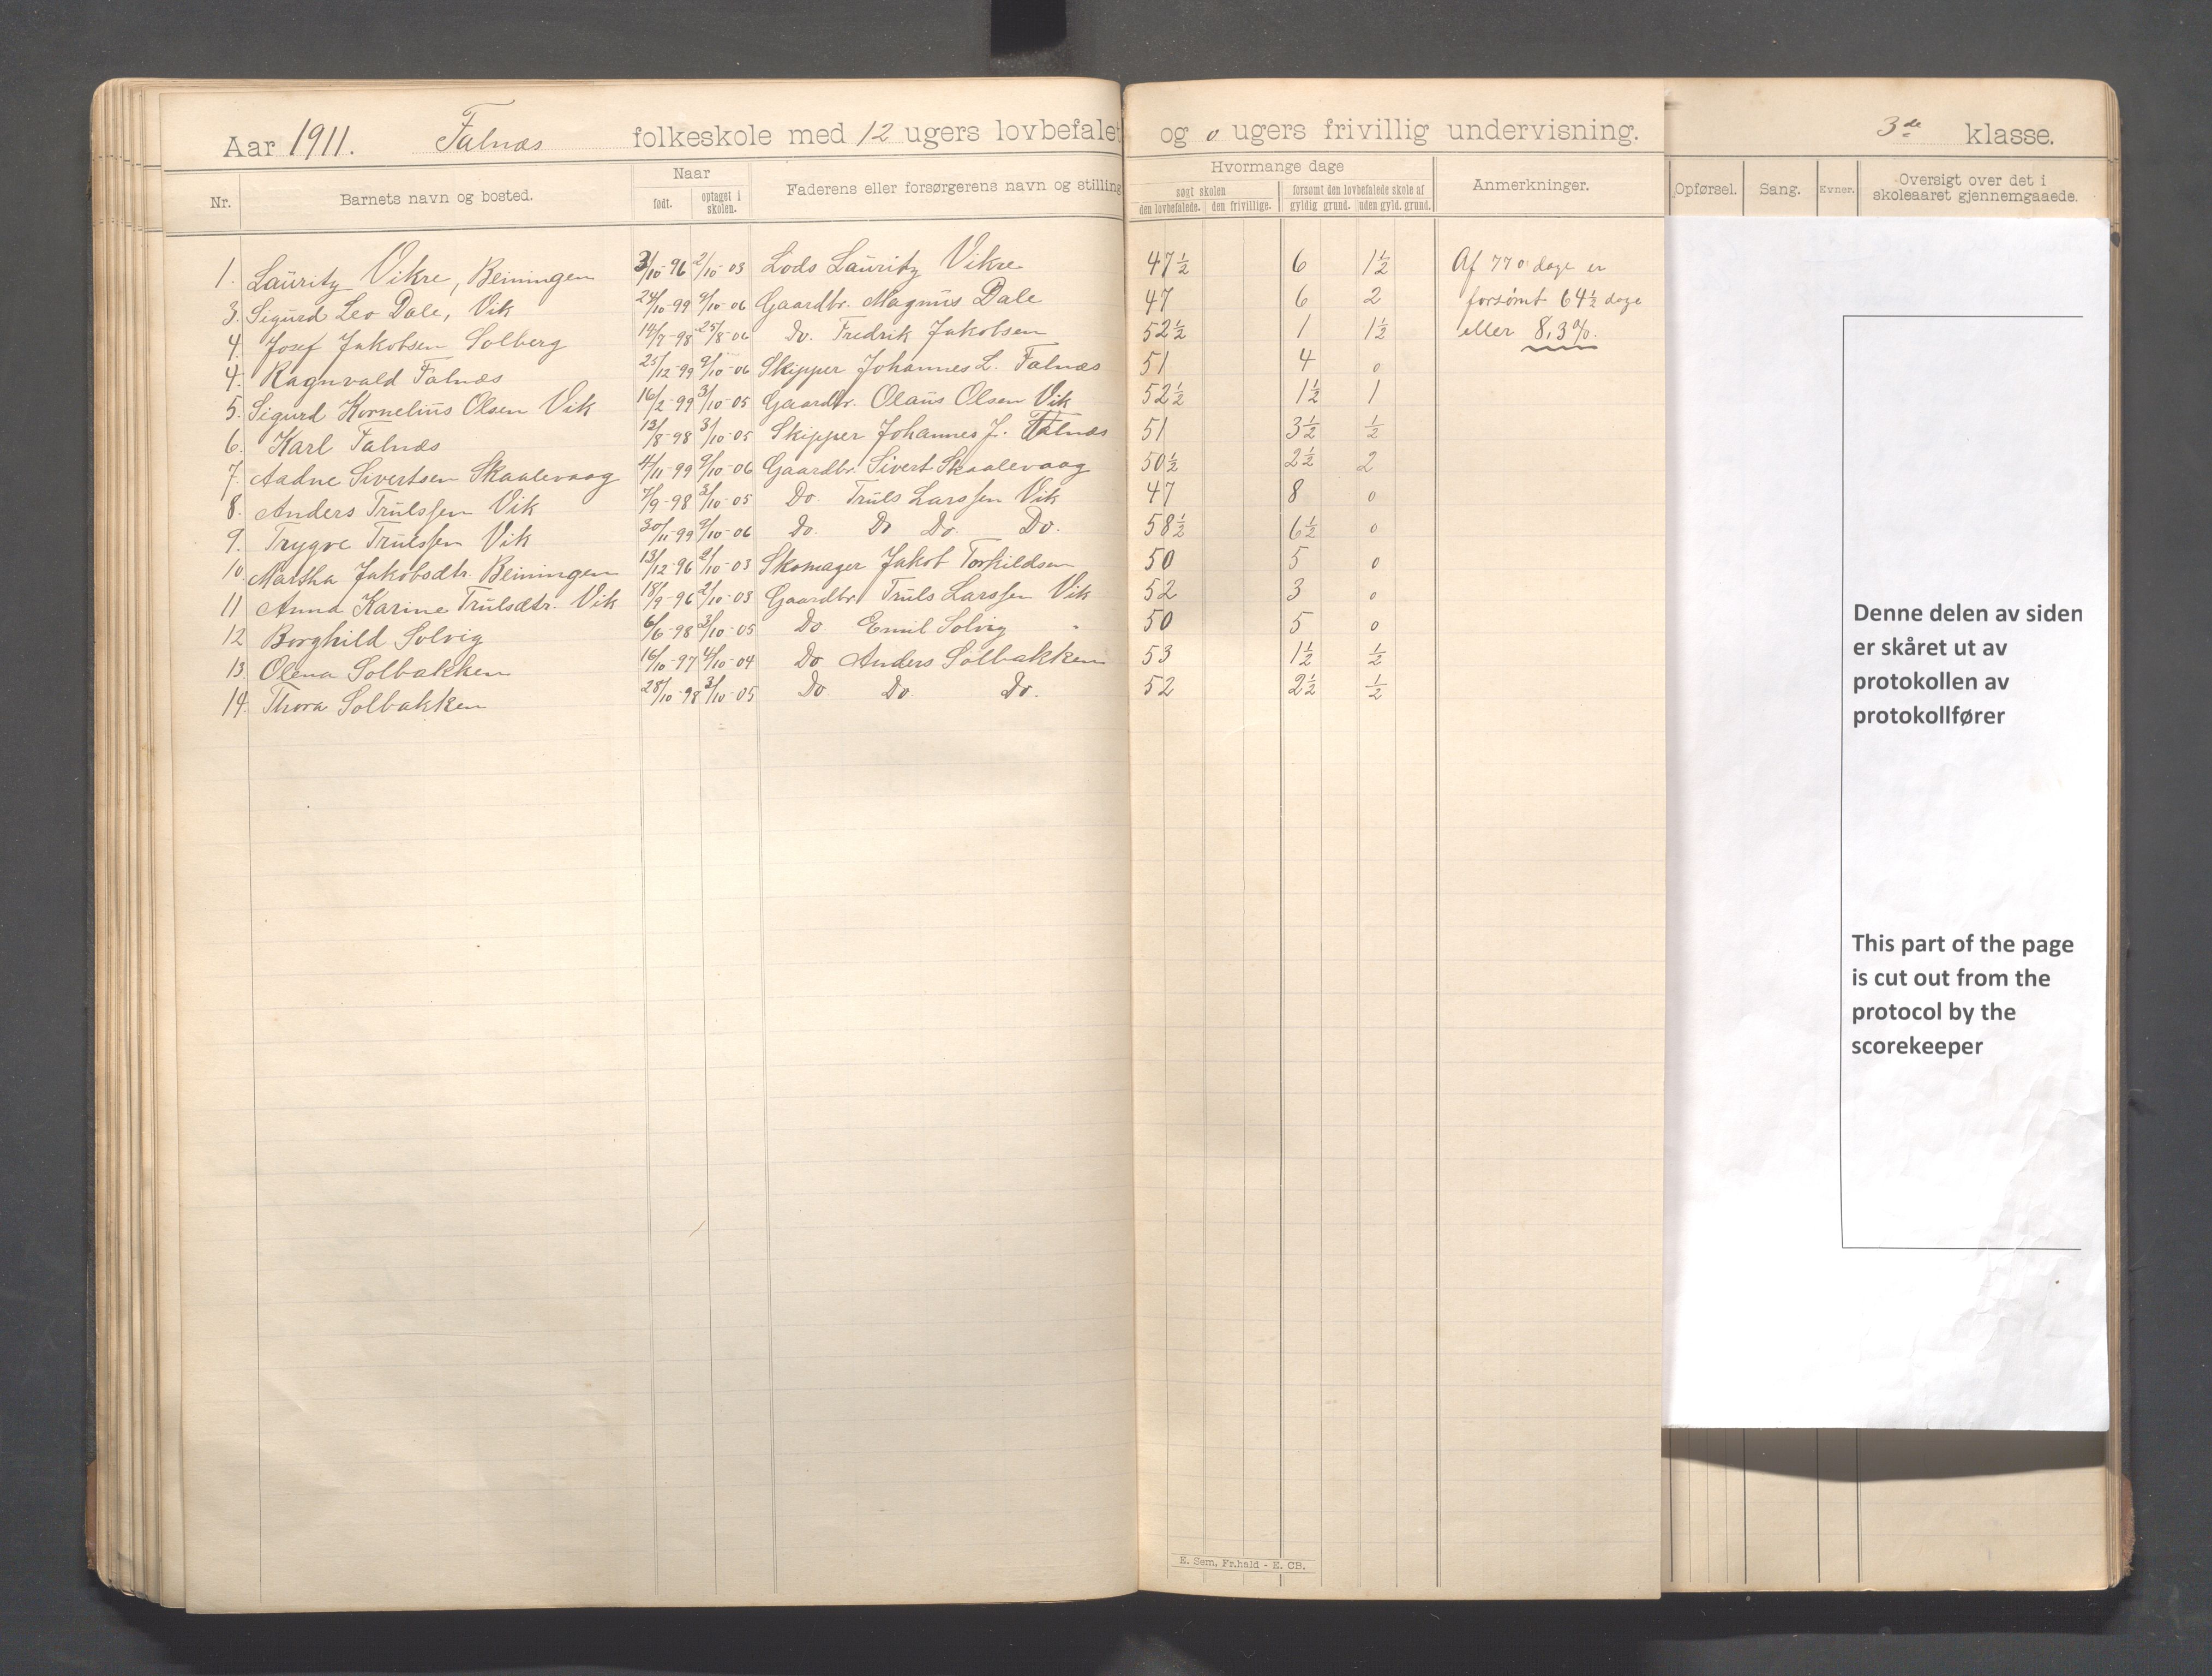 Aar 1911. Falnæs folkeskole med 12 ugers lovbefalet og 0 ugers frivillig undervisning. 3de klasse.
Nr. Barnets navn og bosted. Naar født. optaget i skolen. Faderens eller forsørgerens navn og stilling Hvormange dage søgt skolen den lovbefalede. den frivillige. forsømt den lovbefalede skole af gyldig grund. uden gyld. grund. Anmerkninger. Opførsel. Sang. Evner. Oversigt over det i skoleaaret gjennemgaaede.
1. Lauritz Vikre, Beiningen 3/10-96 2/10-03 Lods Lauritz Vikre 47½ 6 1½ Af 770 dage er
3. Sigurd Leo Dale, Vik 24/10-99 9/10-06 Gaardbr. Magnus Dale 47 6 2 forsømt 64½ dage
4. Josef Jakobsen Solberg 14/7-98 25/8-06 Do. Fredrik Jakobsen 52½ 1 1½ eller 8,3%.
4. Ragnvald Falnæs 25/12-99 9/10-06 Skipper Johannes L. Falnæs 51 4 0
5. Sigurd Kornelius Olsen Vik 16/2-99 3/10-05 Gaardbr. Olaus Olsen Vik 52½ 1½ 1
6. Karl Falnæs 13/8-98 3/10-05 Skipper Johannes J. Falnæs 51 3½ ½
7. Aadne Sivertsen Skaalevaag 4/11-99 9/10-06 Gaardbr. Sivert Skaalevaag 50½ 2½ 2
8. Anders Trulssen Vik 7/9-98 3/10-05 Do. Truls Larssen Vik 47 8 0
9. Trygve Trulssen Vik 30/11-99 9/10-06 Do. Do Do. Do. 58½ 6½ 0
10. Martha Jakobsdtr. Beiningen 13/12-96 2/10-03 Skomager Jakob Torkildsen 50 5 0
11 Anna Karine Trulsdtr. Vik 18/9-96 2/10-03 Gaardbr. Truls Larssen Vik 52 3 0
12 Borghild Solvig 6/6-98 3/10-05 Do Emil Solvig " 50 5 0
13. Olena Solbakken 16/10-97 4/10-04 Do Anders Solbakken 53 1½ ½
14. Thora Solbakken 28/10-98 3/10-05 Do Do. Do. 52 2½ ½
E. Sem, Fr.hald - E. CB.
Denne delen av siden
er skåret ut av
protokollen av
protokollfører
This part of the page
is cut out from the
protocol by the
scorekeeper